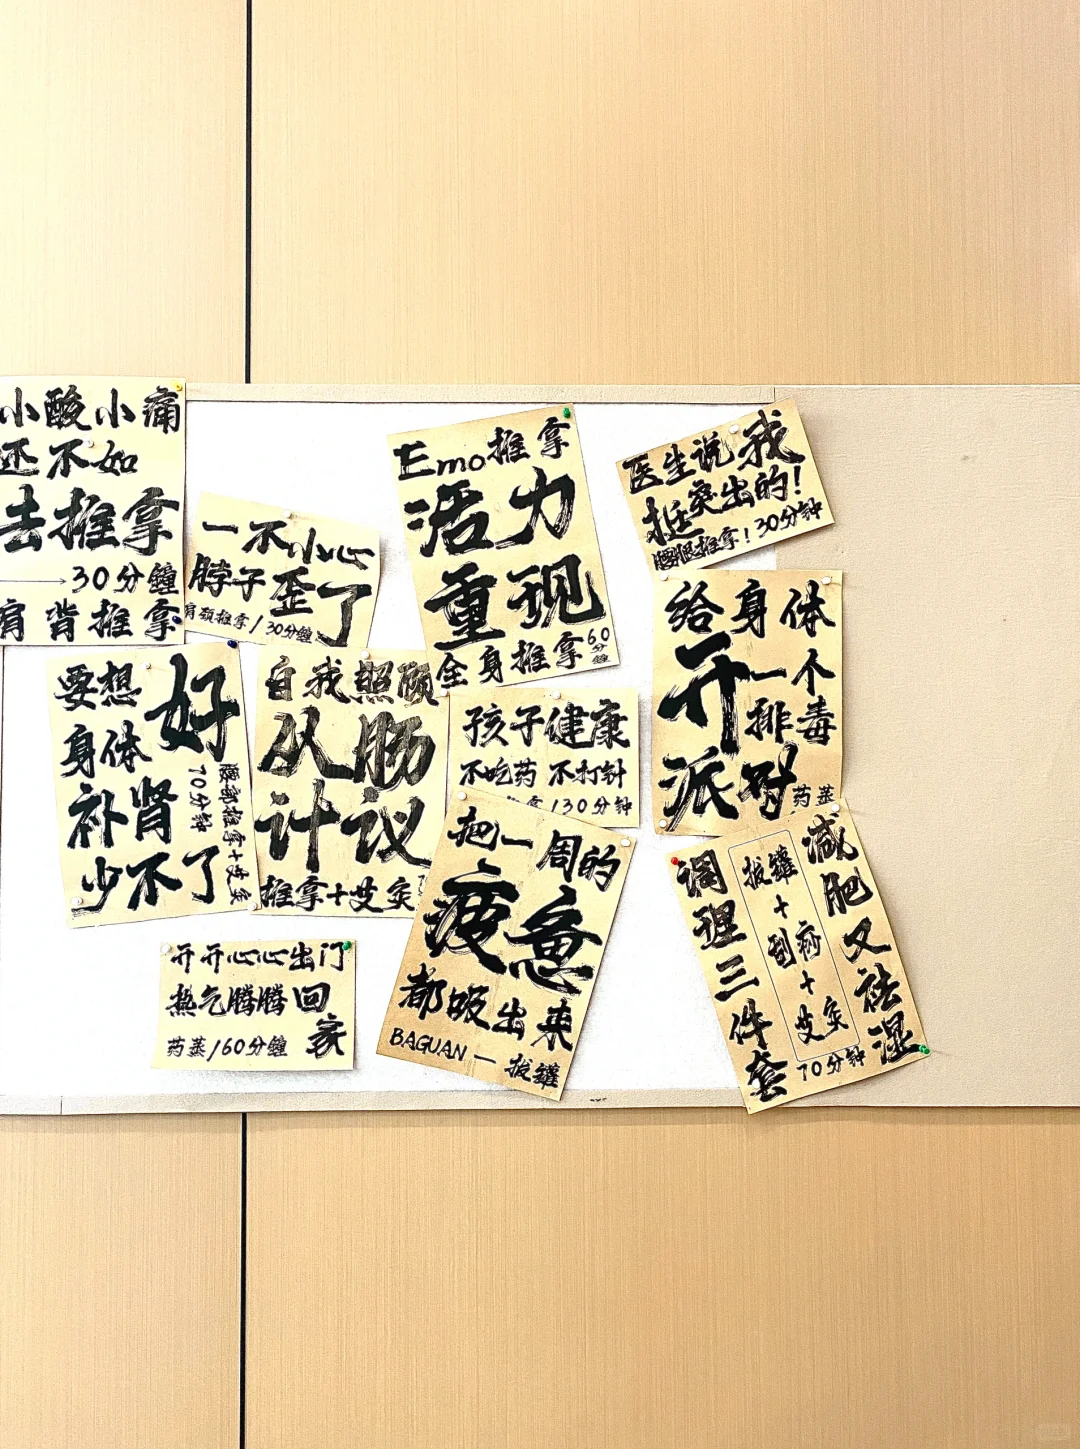 小酸小痛
还不如
去推拿
30分鐘
肩背推拿
一不小心
脖子歪了
肩颈推拿/30分鐘
Emo推拿
活力
重现
全身推拿
60分鐘
医生说我
挺突出的!
腰腿推拿!30分钟
给身体
开一个
排毒
派对
药蒸
要想
身体好
补肾
少不了
腰部推拿+艾灸
70分钟
自我照顾
从肠
计议
推拿+艾灸
孩子健康
不吃药 不打针
/30分钟
把一周的
疲惫
都吸出来
BAGUAN一拔罐
减肥又祛湿
拔罐+刮痧+艾灸
调理三件套
70分钟
开开心心出门
热气腾腾回家
药蒸/60分鐘